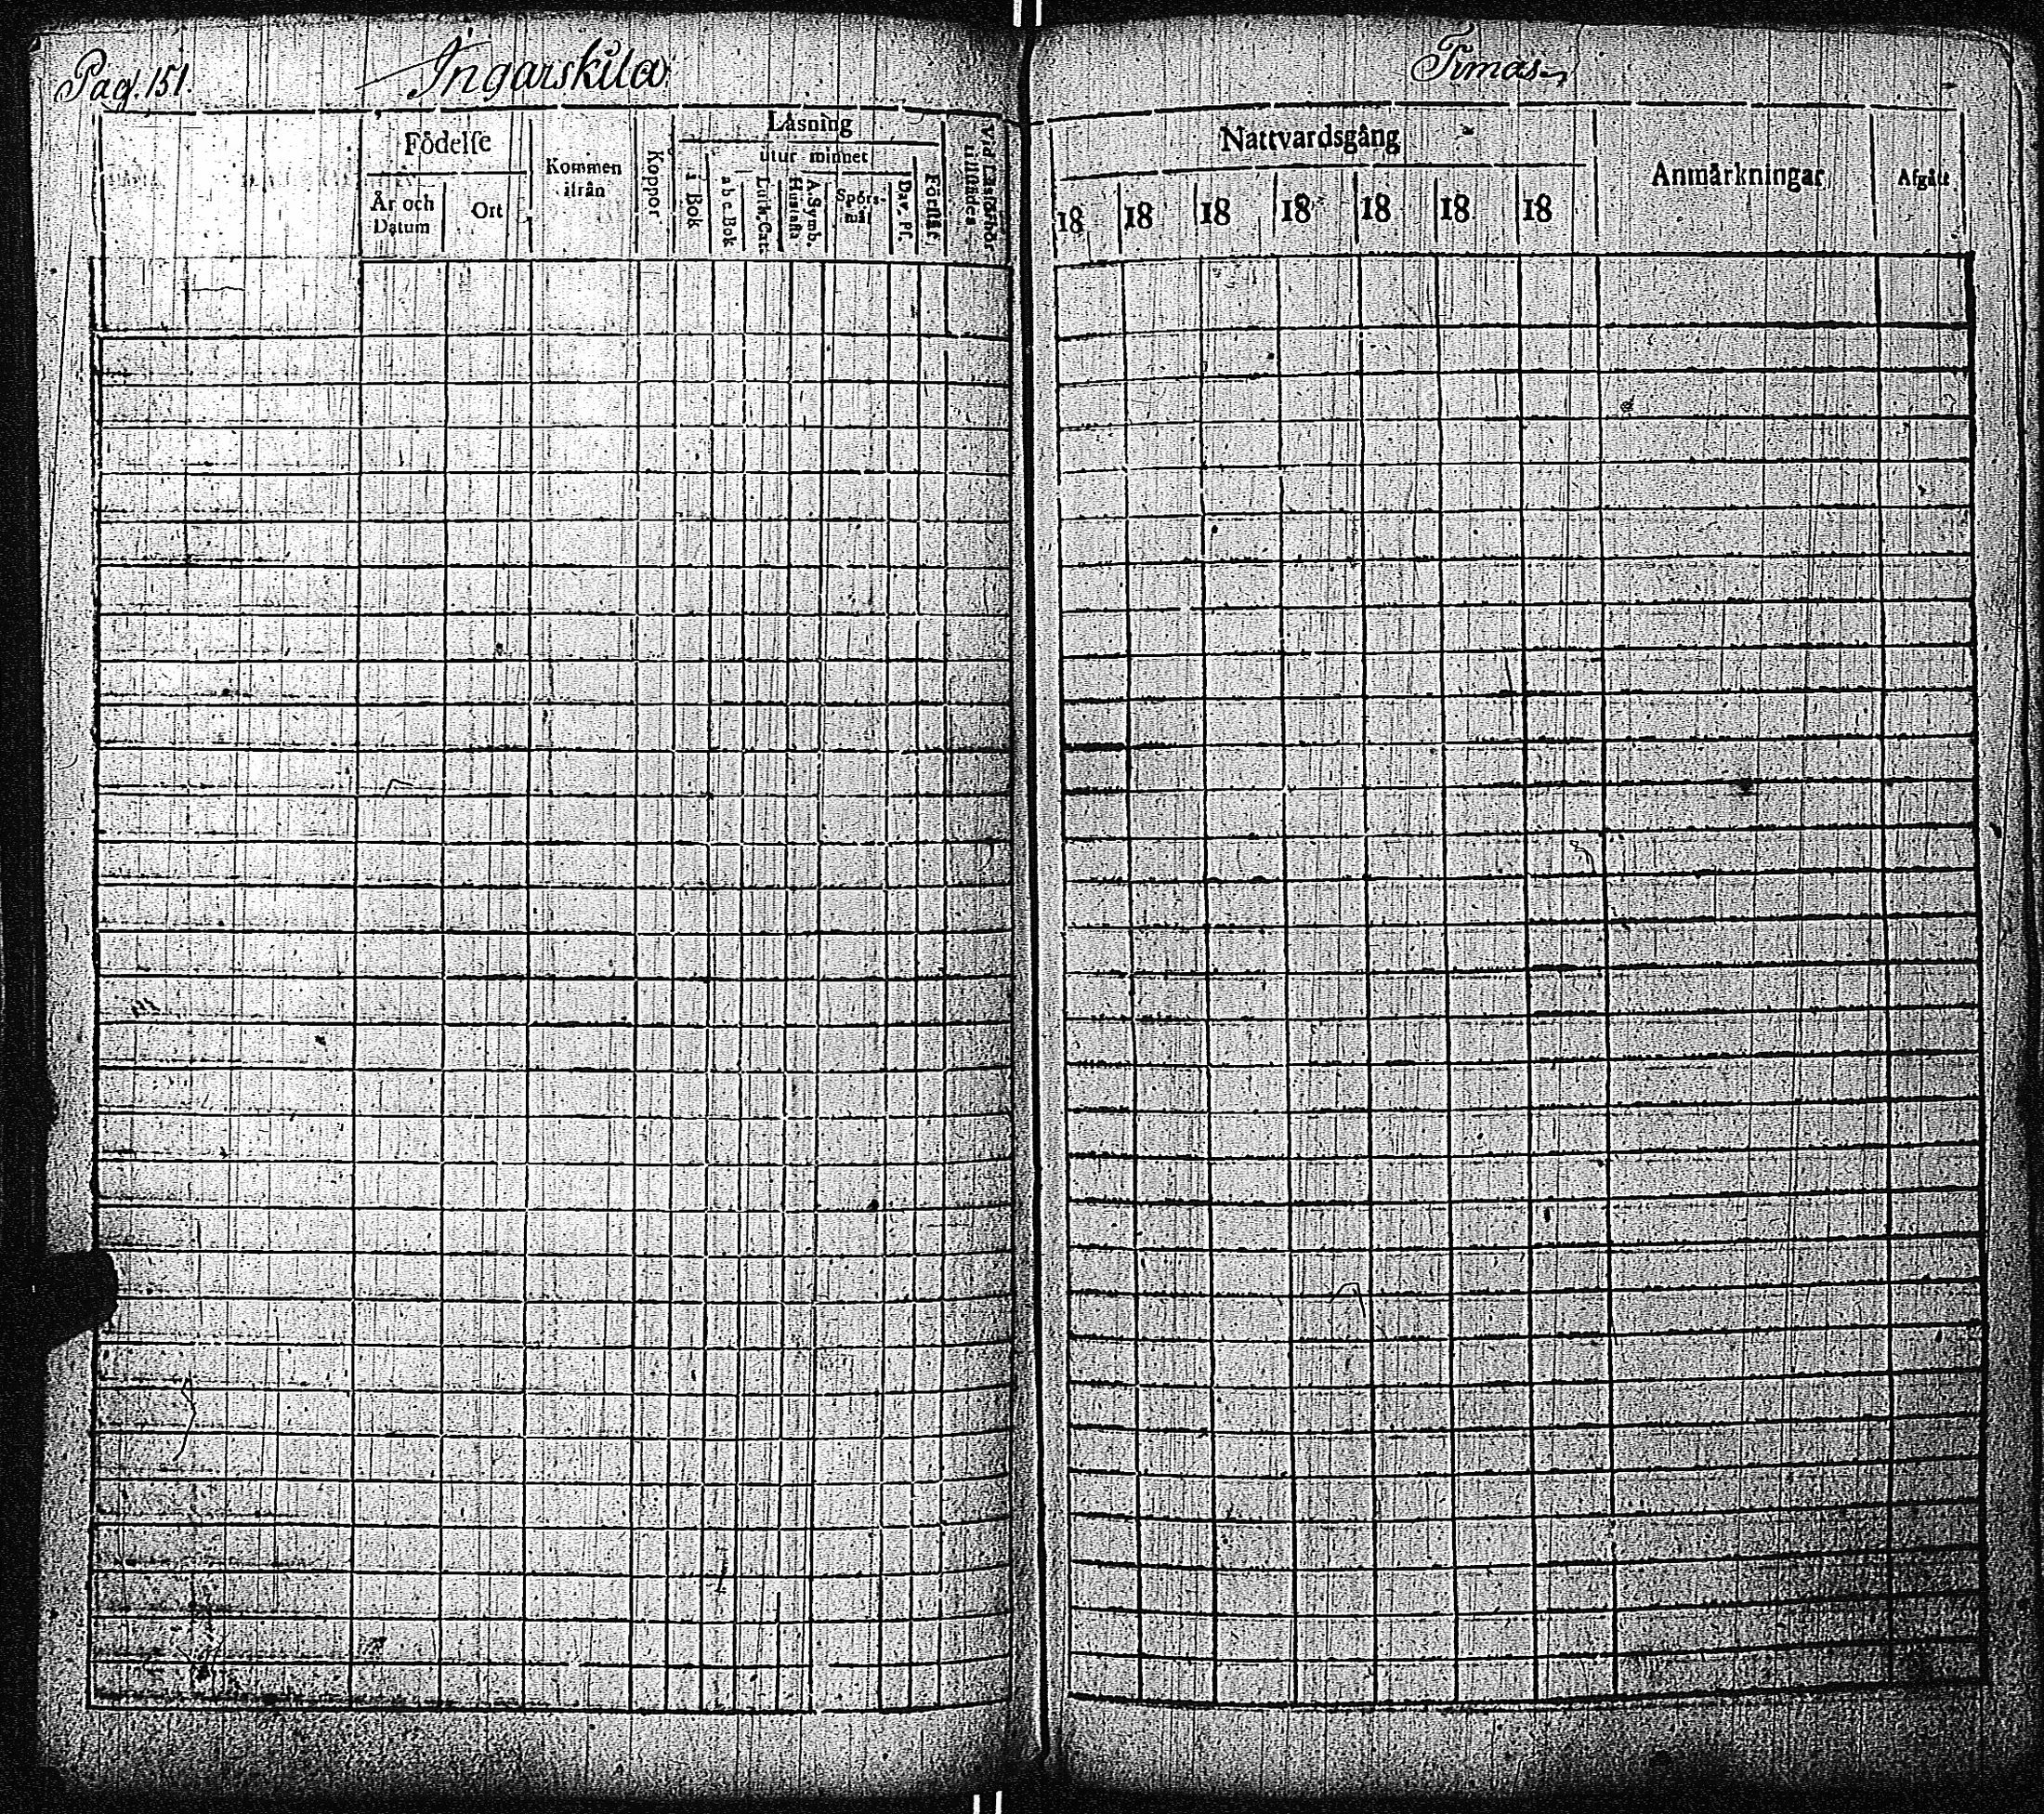 Pag. 151.
Ingarskila
Födelse
År och Datum
Ort
Kommen ifrån
Koppor
Läsning
i Bok
utur minnet
a b c Bok
Luth. Cat.
Hustafla
A. Symb.
Spörs-mål
Dav. Ps.
Förstår
Vid Läsförhör tillstädes
Nattvardsgång
18 18 18 18 18 18 18
Anmärkningar
Afgått